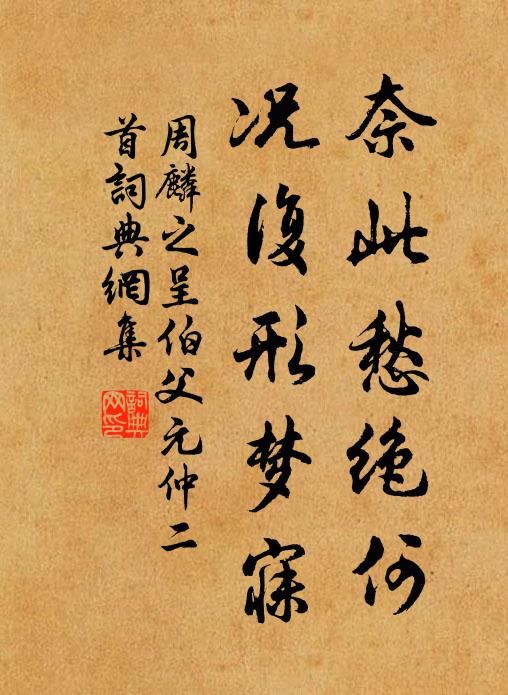 奈此愁绝何
况復形梦寐
周麟之呈伯父元仲二
首詞典網集
詞典
网印